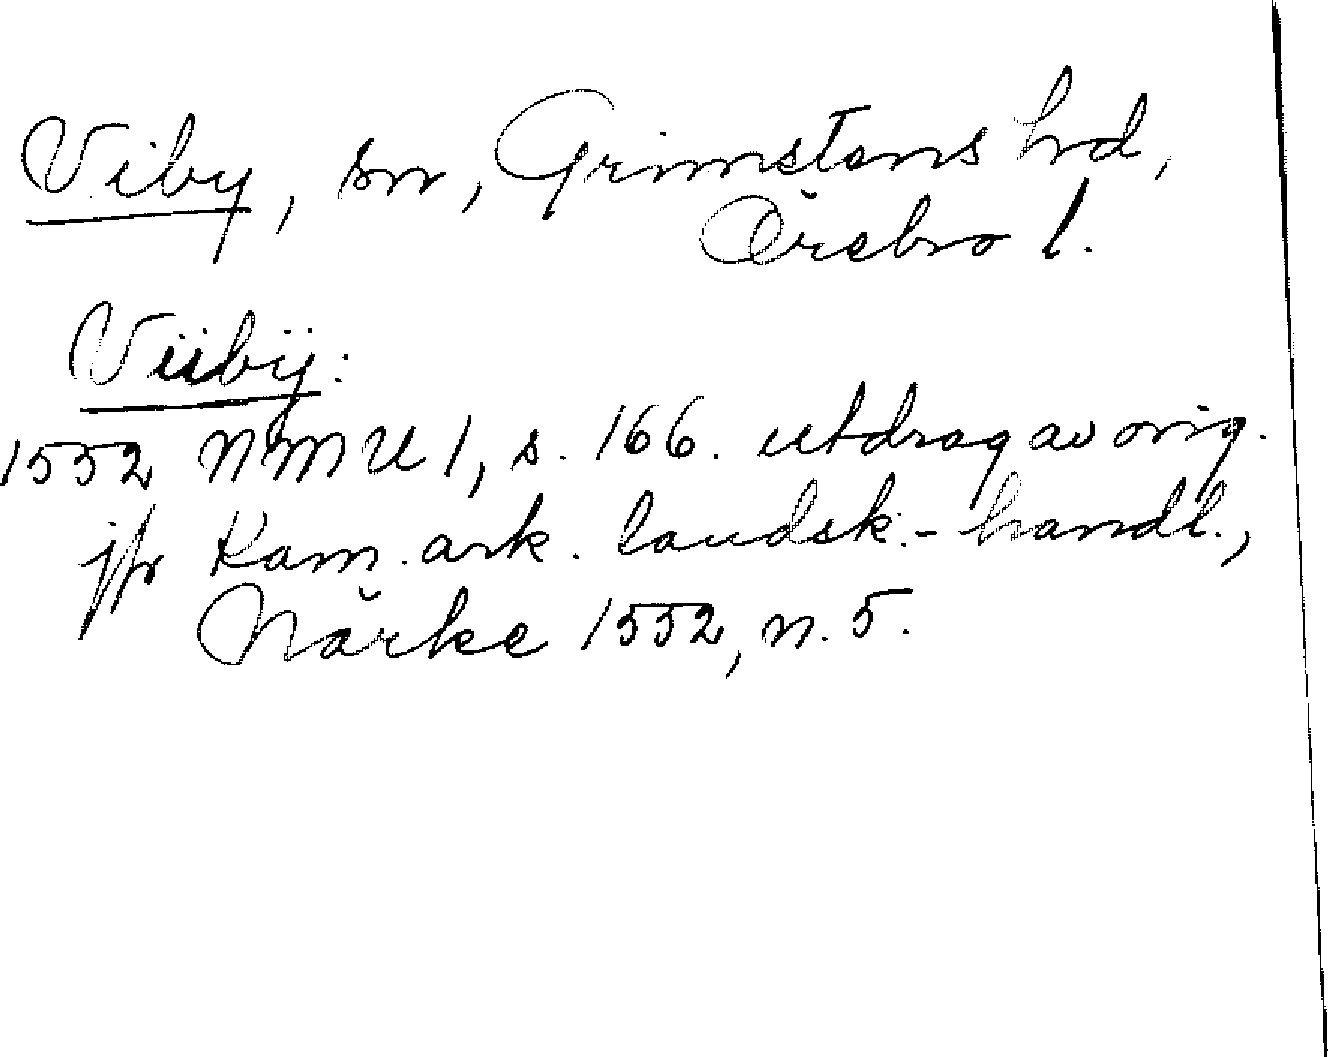 Viby, sn, Grimstens hd,
Örebro l.
Viibÿ:
1552 NMU 1, s. 166. utdrag av orig.
jfr Kam. ark. landsk.-handl.,
Närke 1552, n. 5.